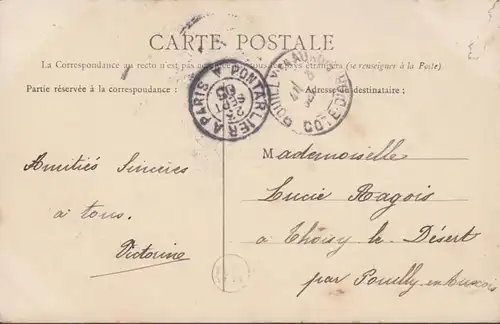 CARTE POSTALE
La Correspondance au recto n'est pas acceptée par tous les pays étrangers (se renseigner à la Poste)
Partie réservée à la correspondance :
Adresse du destinataire :
PONTARLIER A PARIS
24
SEPT
05
POUILLY-EN-AUXOIS
COTE-D'OR
Amitiés Sincères
à tous.
Victorine
Mademoiselle
Lucie Ragois
à Thoisy le Désert
par Pouilly en Auxois